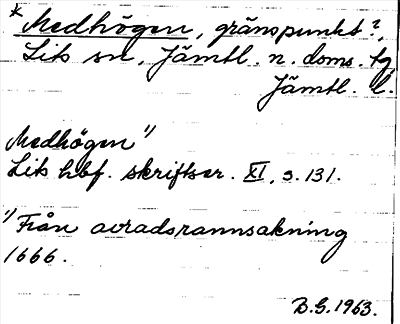 * Medhögen, gränspunkt?,
Lits sn, Jämtl. n. doms. tg
Jämtl. l.
Medhögen 1)
Lits hbf. skriftser. XI, s. 131.
1) Från avradsrannsakning
1666.
B.G. 1963.